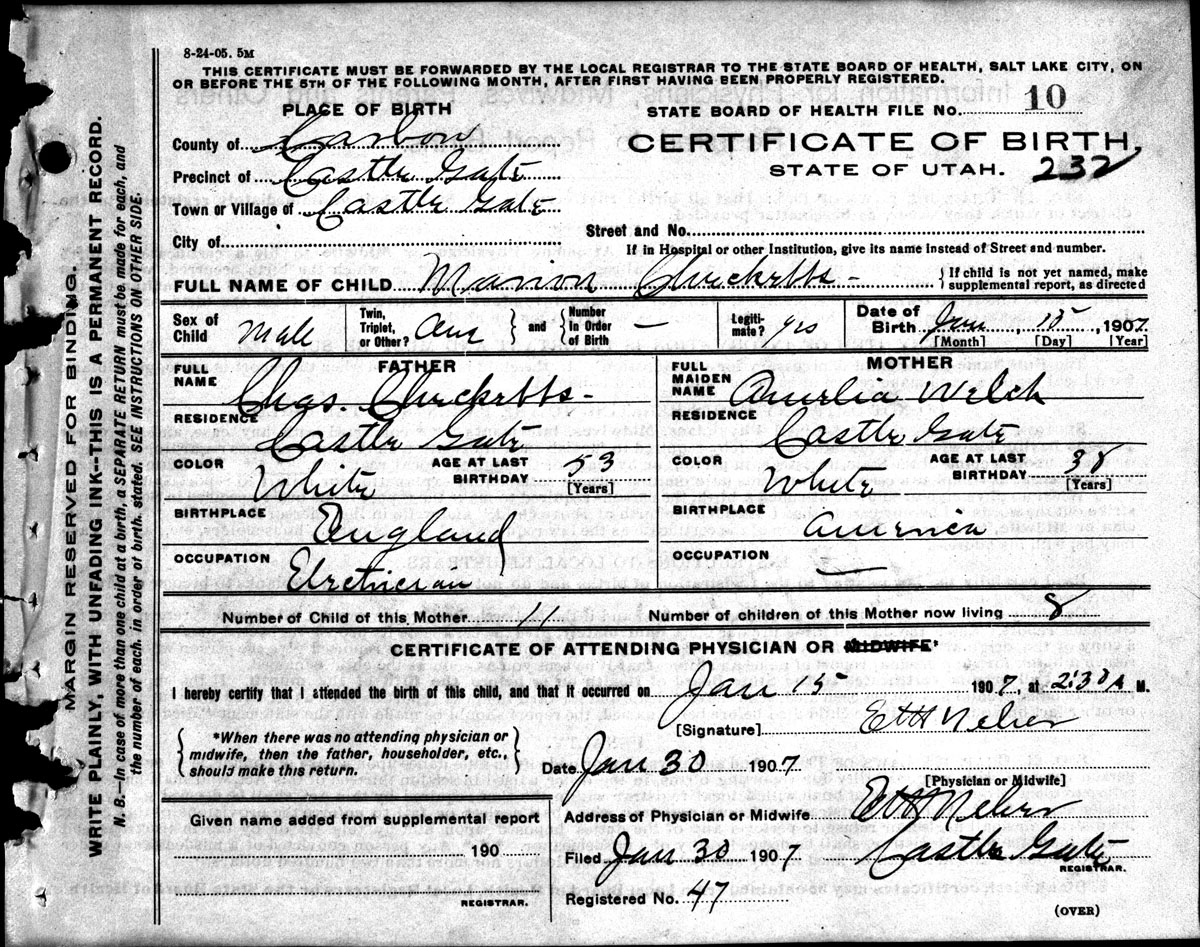 8-24-05. 5M
THIS CERTIFICATE MUST BE FORWARDED BY THE LOCAL REGISTRAR TO THE STATE BOARD OF HEALTH, SALT LAKE CITY, ON
OR BEFORE THE 5TH OF THE FOLLOWING MONTH, AFTER FIRST HAVING BEEN PROPERLY REGISTERED.
PLACE OF BIRTH
STATE BOARD OF HEALTH FILE No. 10
County of Carbon
CERTIFICATE OF BIRTH.
Precinct of Castle Gate
STATE OF UTAH. 232
Town or Village of Castle Gate
Street and No.
City of
If in Hospital or other Institution, give its name instead of Street and number.
FULL NAME OF CHILD
If child is not yet named, make
supplemental report, as directed
Sex of Child Male
Twin, Triplet, or Other? One and Number In Order of Birth —
Legitimate? yes
Date of Birth Jan, 15, 1907
[Month] [Day] [Year]
FATHER
FULL NAME Chas.
RESIDENCE Castle Gate
COLOR White
AGE AT LAST BIRTHDAY 53 [Years]
BIRTHPLACE England
OCCUPATION Electrician
MOTHER
FULL MAIDEN NAME Amelia Welch
RESIDENCE Castle Gate
COLOR White
AGE AT LAST BIRTHDAY 38 [Years]
BIRTHPLACE America
OCCUPATION —
Number of Child of this Mother 11
Number of children of this Mother now living 8
CERTIFICATE OF ATTENDING PHYSICIAN OR MIDWIFE*
I hereby certify that I attended the birth of this child, and that it occurred on Jan 15 1907, at 2:30 A M.
[Signature]
*When there was no attending physician or
midwife, then the father, householder, etc.,
should make this return.
Date Jan 30 1907
[Physician or Midwife]
Given name added from supplemental report
190
REGISTRAR.
Address of Physician or Midwife
Castle Gate
Filed Jan 30 1907
REGISTRAR.
Registered No. 47
(OVER)
MARGIN RESERVED FOR BINDING.
WRITE PLAINLY, WITH UNFADING INK--THIS IS A PERMANENT RECORD.
N. B.—In case of more than one child at a birth, a SEPARATE RETURN must be made for each, and
the number of each, in order of birth, stated. SEE INSTRUCTIONS ON OTHER SIDE.